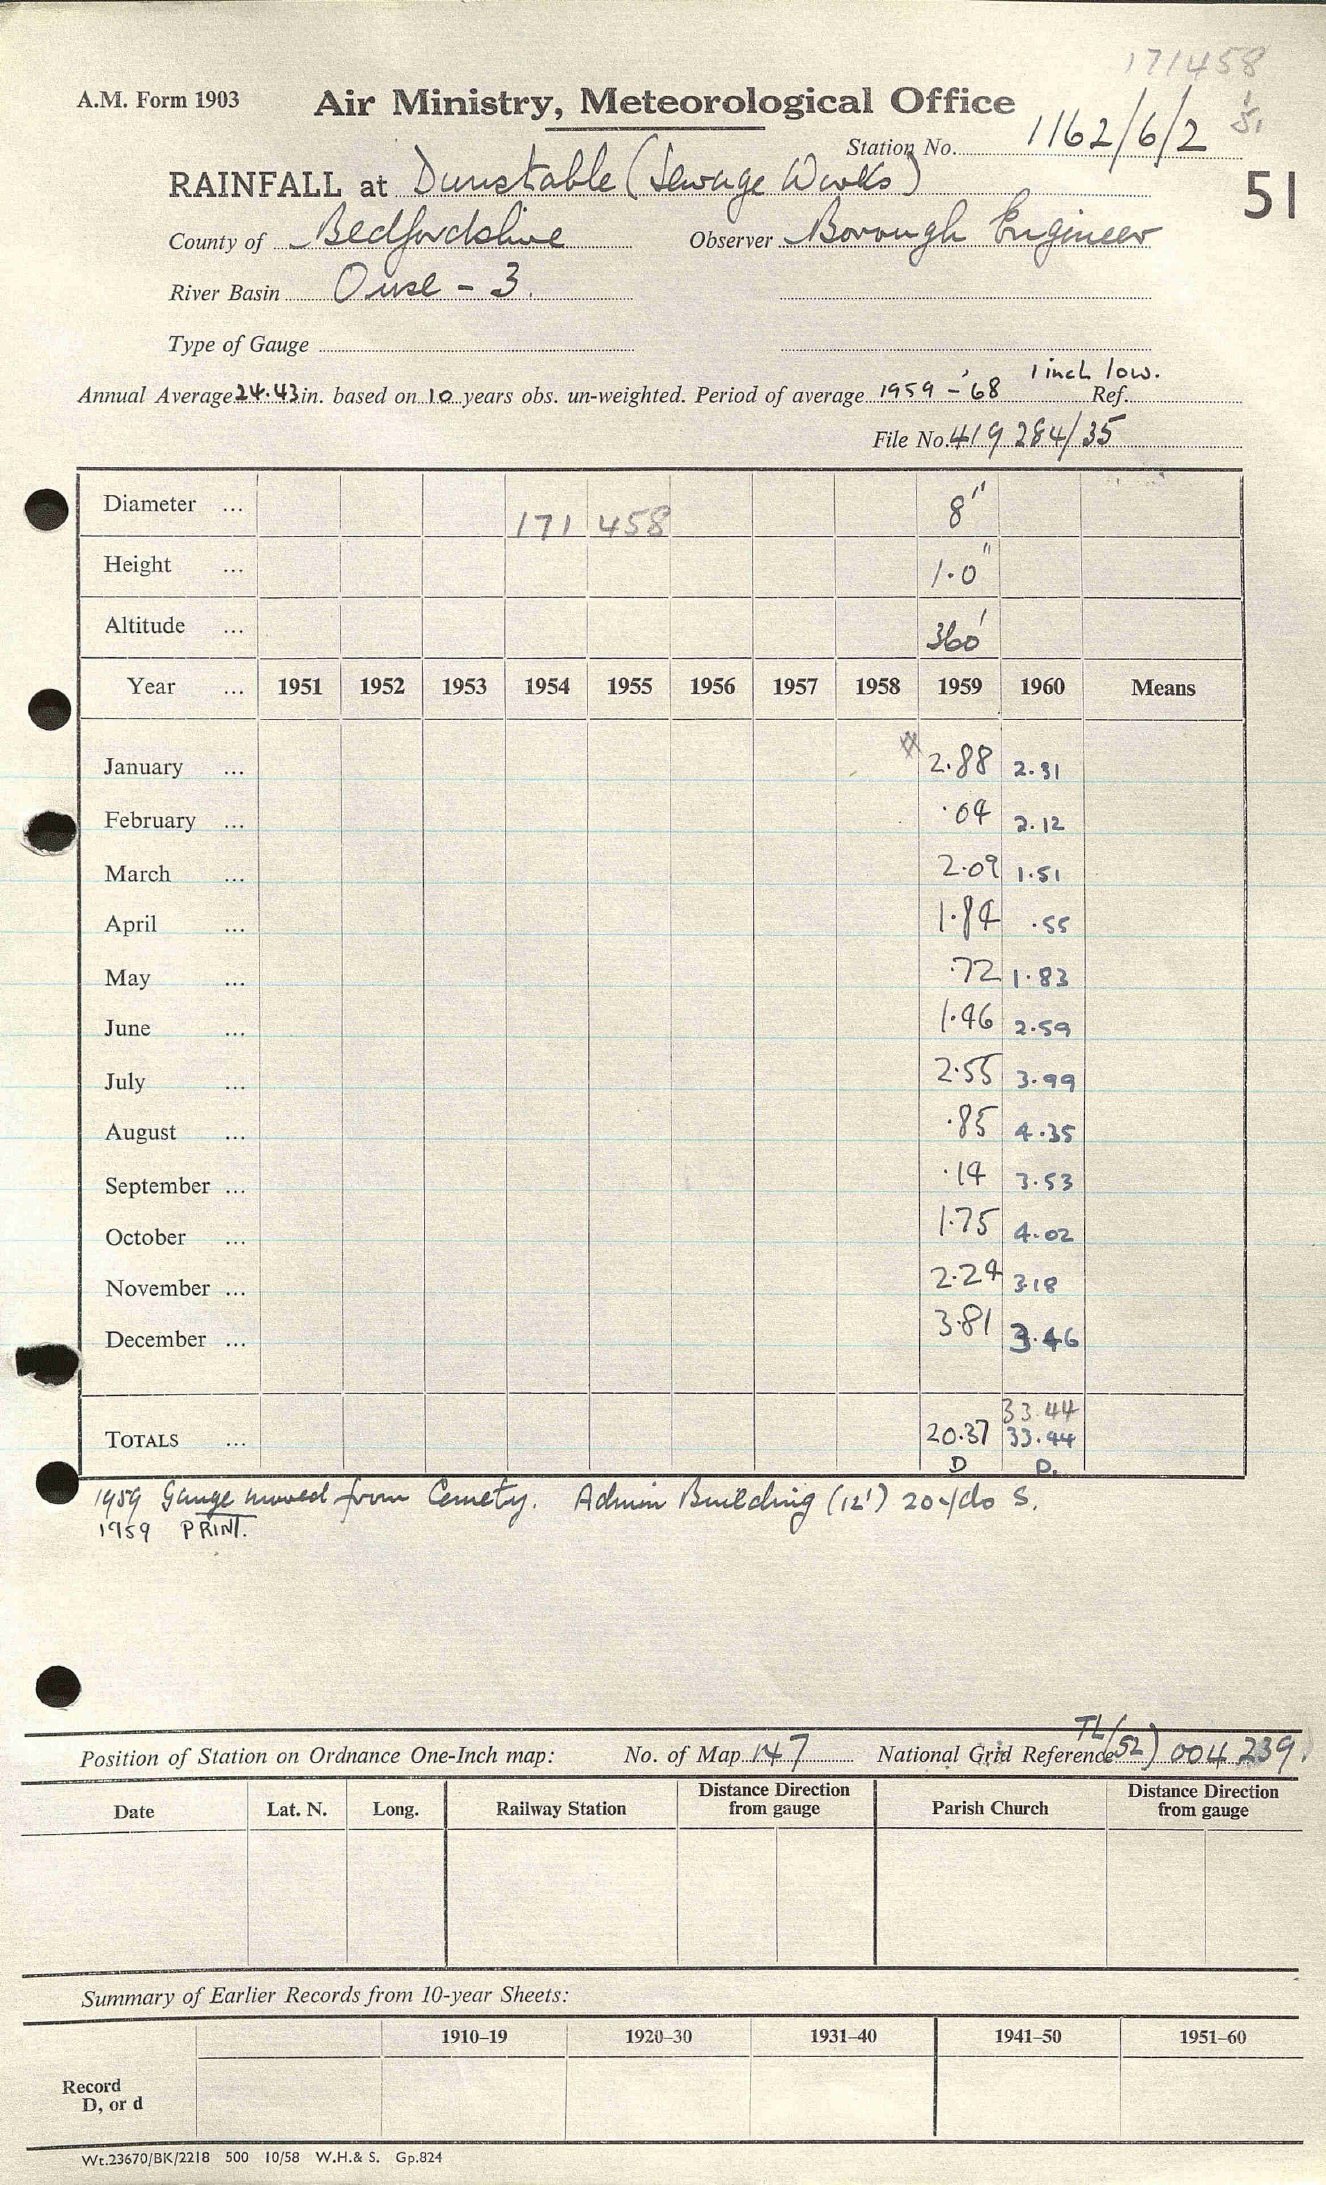 171458
A.M. Form 1903
Air Ministry, Meteorological Office
Station No. 1162/6/2
RAINFALL at Dunstable (Sewage Works)
51
County of Bedfordshire Observer Borough Engineer
River Basin Ouse - 3.
Type of Gauge
1 inch low.
Annual Average 24.43 in. based on 10 years obs. un-weighted. Period of average 1959 - '68 Ref.
File No. 419 284/35
Diameter ... 8"
171 458
Height ... 1.0"
Altitude ... 360'
Year ... 1951 1952 1953 1954 1955 1956 1957 1958 1959 1960 Means
January ... 2.88 2.31
February ... .04 2.12
March ... 2.09 1.51
April ... 1.84 .55
May ... .72 1.83
June ... 1.46 2.59
July ... 2.55 3.99
August ... .85 4.35
September ... .14 3.53
October ... 1.75 4.02
November ... 2.24 3.18
December ... 3.81 3.46
33.44
TOTALS ... 20.37 33.44
D D.
1959 Gauge moved from Cemety. Admin Building (12') 20yds S.
1959 PRINT.
Position of Station on Ordnance One-Inch map: No. of Map 147 National Grid Reference TL(52) 004 239.
Date Lat. N. Long. Railway Station Distance Direction from gauge Parish Church Distance Direction from gauge
Summary of Earlier Records from 10-year Sheets:
1910–19 1920–30 1931–40 1941–50 1951–60
Record
D, or d
Wt.23670/BK/2218 500 10/58 W.H.& S. Gp.824